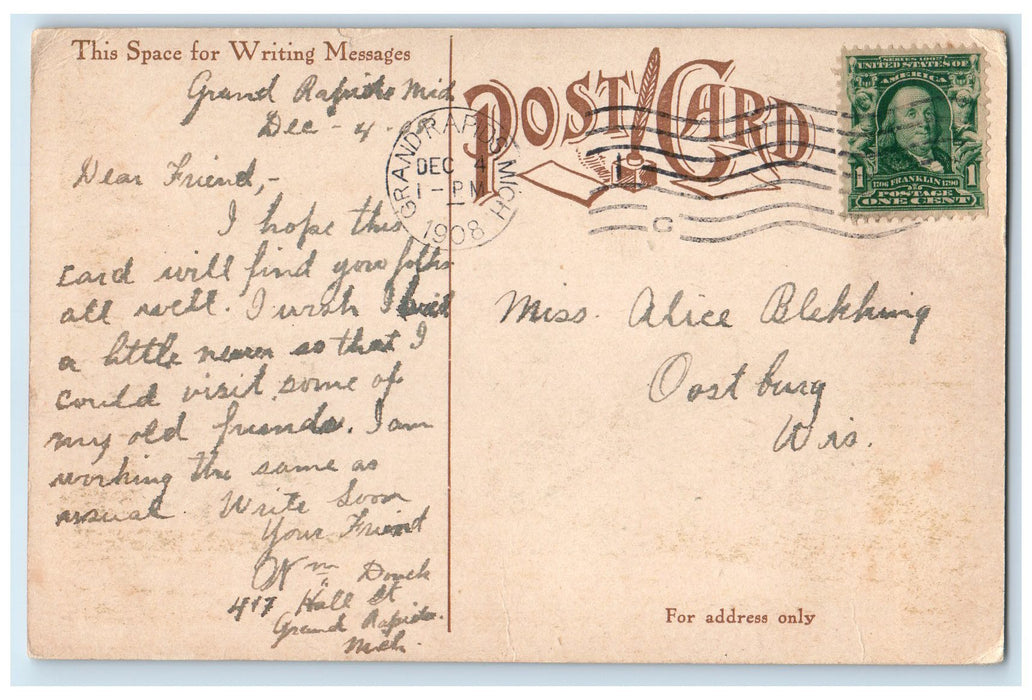 This Space for Writing Messages
Grand Rapids Mich
Dec - 4.
Dear Friend,-
I hope this
card will find you folks
all well. I wish I
a little nearer so that I
could visit some of
my old friends. I am
working the same as
usual. Write Soon
Your Friend
Wm
417 Hall St
Grand Rapids.
Mich.
POST CARD
GRAND RAPIDS MICH
DEC 4
1 - PM
1908
C
SERIES 1902
UNITED STATES OF
AMERICA
1706 FRANKLIN 1790
1 1
POSTAGE
ONE CENT
Miss. Alice Blekking
Oostburg
Wis.
For address only